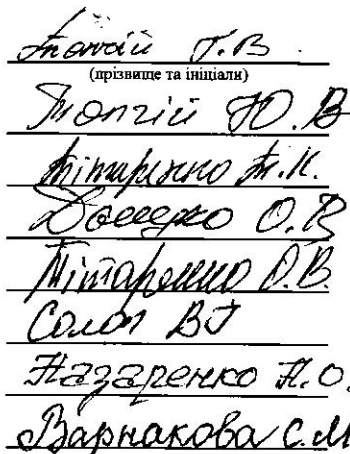 Топчій Г.В
(прізвище та ініціали)
Топчій Ю.В
Тітаренко Т.К.
О.В
Тітаренко О.В.
Солоп В Г
Назаренко Н.О.
Варнакова С.М